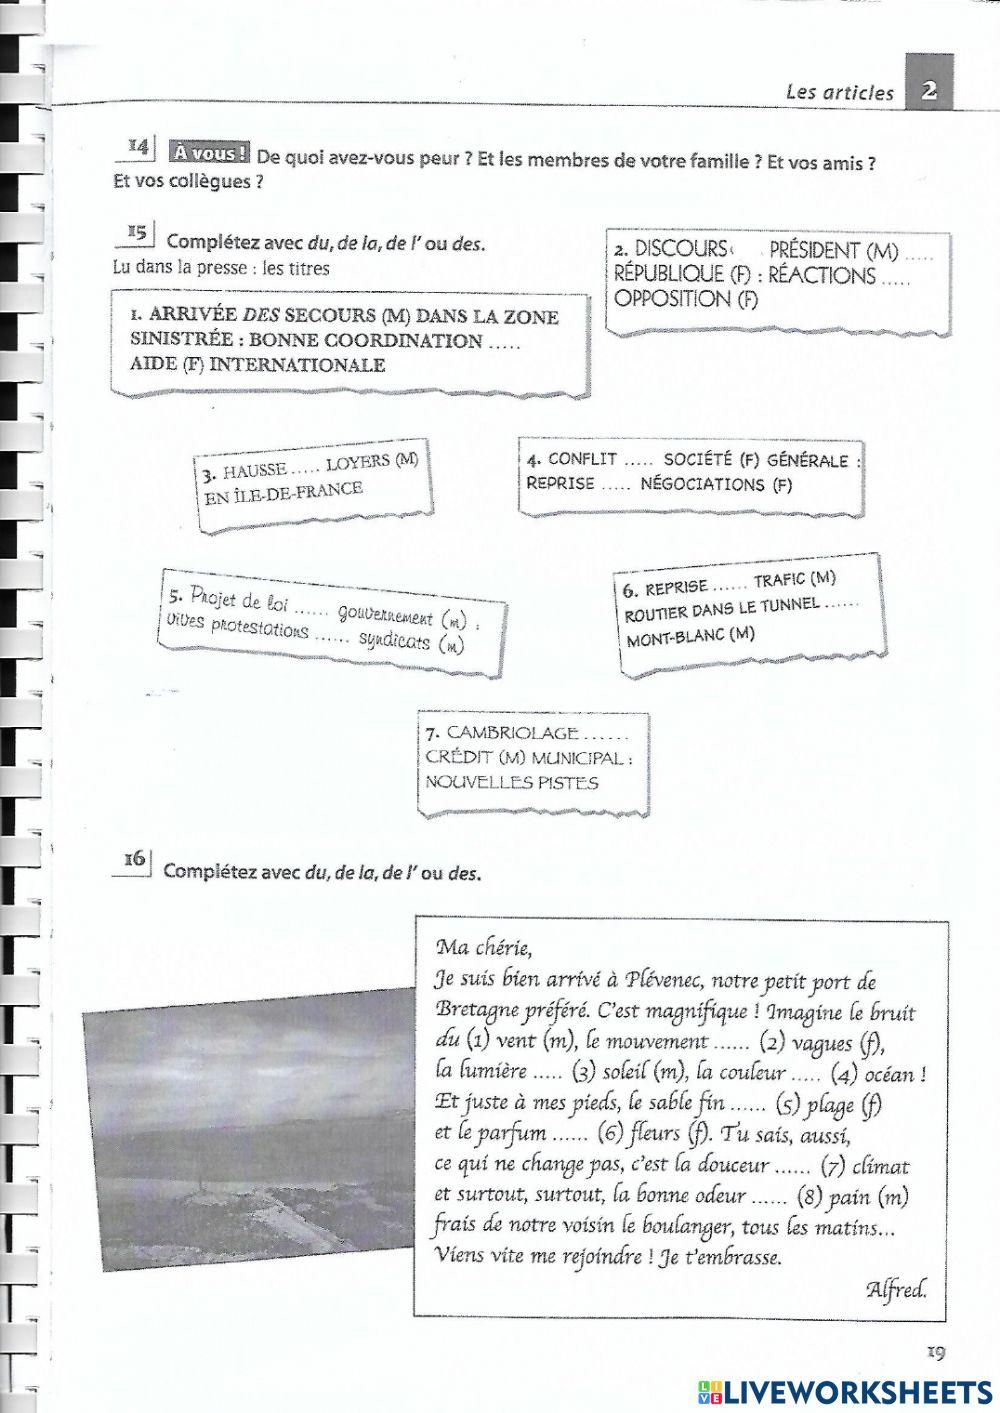 Les articles 2
14 À vous ! De quoi avez-vous peur ? Et les membres de votre famille ? Et vos amis ?
Et vos collègues ?
15 Complétez avec du, de la, de l' ou des.
Lu dans la presse : les titres
1. ARRIVÉE DES SECOURS (M) DANS LA ZONE
SINISTRÉE : BONNE COORDINATION .....
AIDE (F) INTERNATIONALE
2. DISCOURS PRÉSIDENT (M) .....
RÉPUBLIQUE (F) : RÉACTIONS .....
OPPOSITION (F)
3. HAUSSE ..... LOYERS (M)
EN ÎLE-DE-FRANCE
4. CONFLIT ..... SOCIÉTÉ (F) GÉNÉRALE :
REPRISE ..... NÉGOCIATIONS (F)
5. Projet de loi ...... gouvernement (m) :
vives protestations ...... syndicats (m)
6. REPRISE ...... TRAFIC (M)
ROUTIER DANS LE TUNNEL ......
MONT-BLANC (M)
7. CAMBRIOLAGE ......
CRÉDIT (M) MUNICIPAL :
NOUVELLES PISTES
16 Complétez avec du, de la, de l' ou des.
Ma chérie,
Je suis bien arrivé à Plévenec, notre petit port de
Bretagne préféré. C'est magnifique ! Imagine le bruit
du (1) vent (m), le mouvement ...... (2) vagues (f),
la lumière ..... (3) soleil (m), la couleur ..... (4) océan !
Et juste à mes pieds, le sable fin ...... (5) plage (f)
et le parfum ...... (6) fleurs (f). Tu sais, aussi,
ce qui ne change pas, c'est la douceur ...... (7) climat
et surtout, surtout, la bonne odeur ...... (8) pain (m)
frais de notre voisin le boulanger, tous les matins...
Viens vite me rejoindre ! Je t'embrasse.
Alfred.
19
LIVEWORKSHEETS